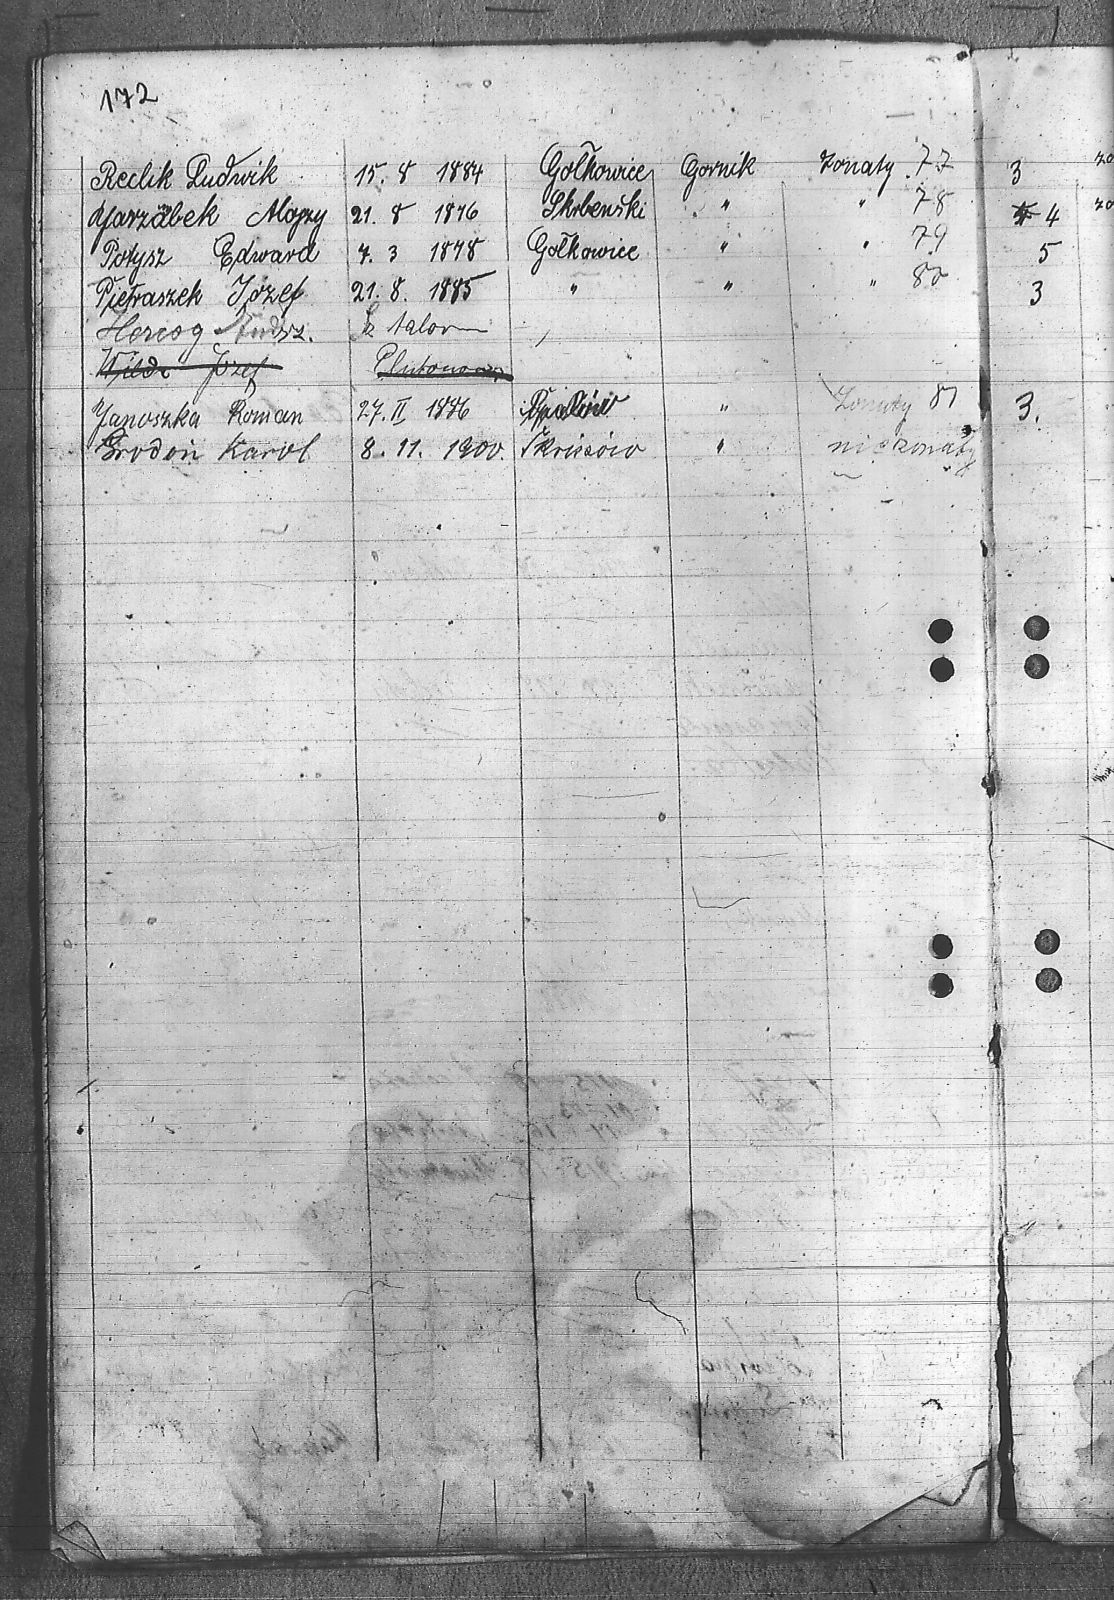 172
Reclik Ludwik 15. 8 1884 Gołkowice Gornik Zonaty 77 3
Jarząbek Alojzy 21. 8 1876 Skrbenski " " 78 4
Potysz Edward 7. 3 1878 Gołkowice " " 79 5
Pietraszek Józef 21. 8. 1885 " " " 80 3
Hercog
Wilde Józef
Janoszka Roman 27. II 1886 " Zonaty 81 3.
Grodoń Karol 8. 11. 1900. " niezonaty